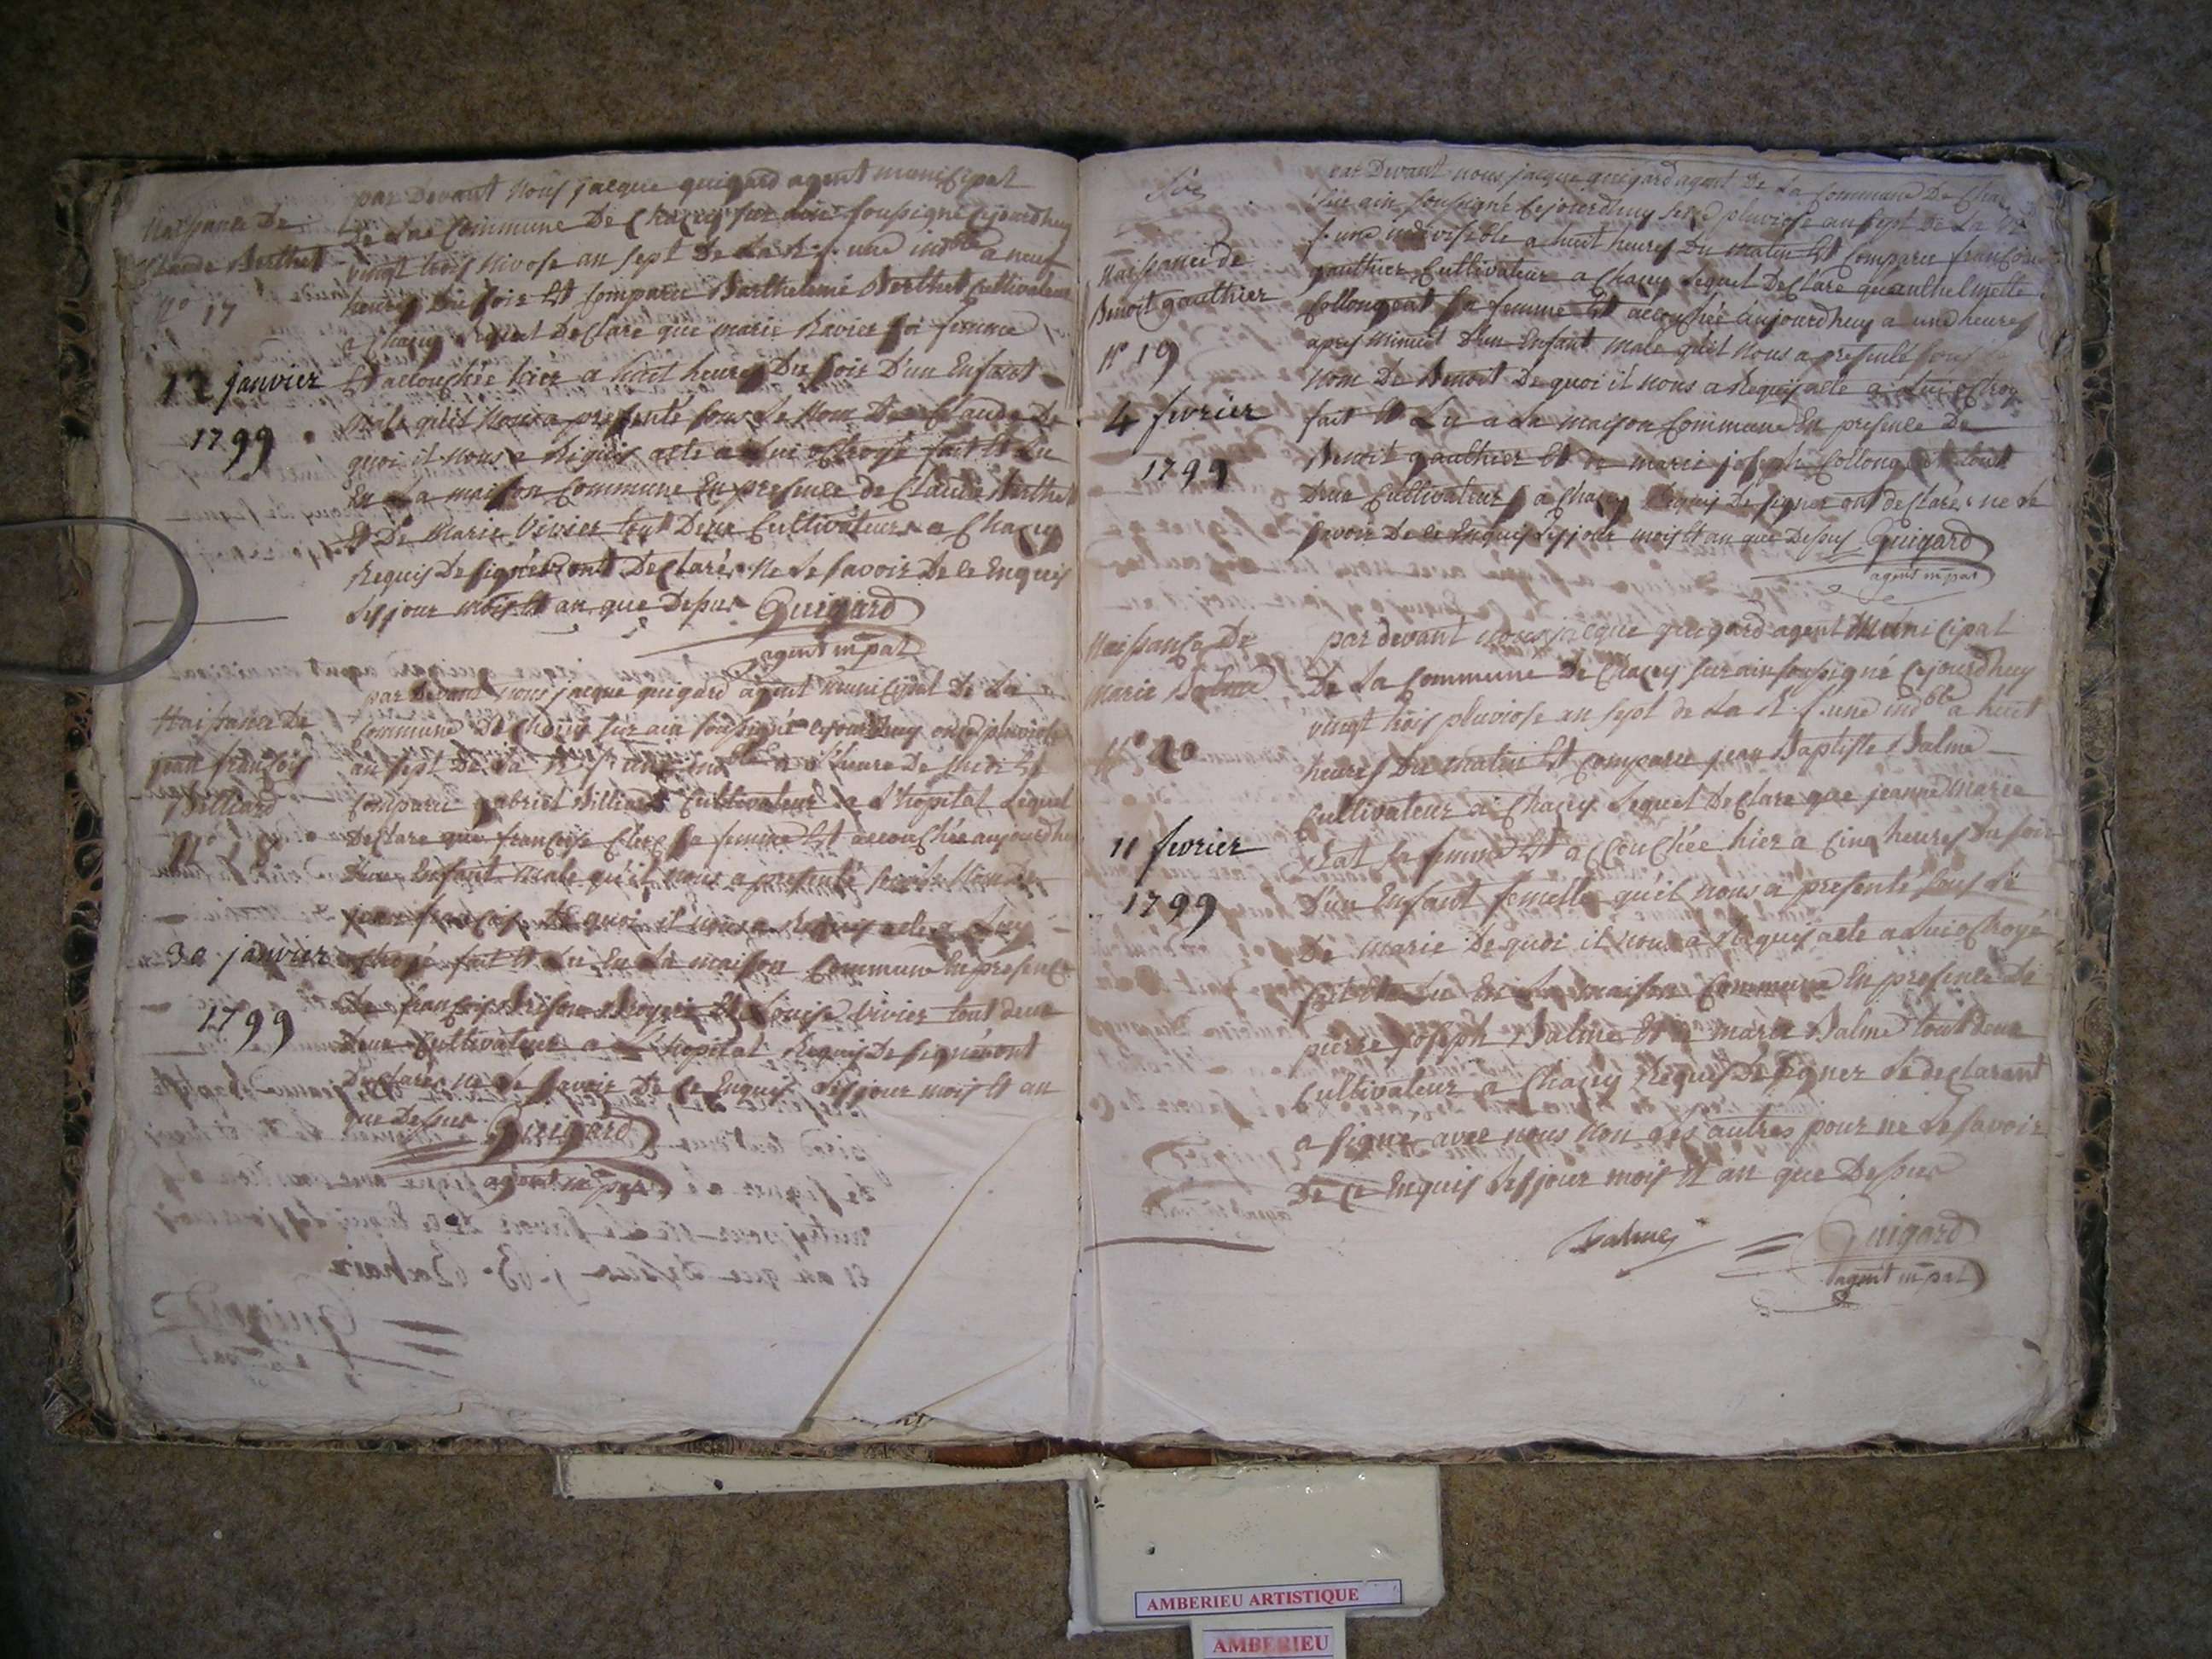 par Devant Nous jacque guigard agent municipal
Naissance De
De La Commune De Chazey sur ain soussigné Cejourdhuy
Claude Berthet
vingt trois Nivose an sept De La R. f. une ind ble a neuf
N° 17
heures Du soir Est Comparu Barthelemi Berthet Cultivateur
a Chazey Lequel Declare que marie Ravier sa femme
12 janvier
Est accouchée hier a huit heures Du soir D'un Enfant
1799
male qu'il Nous a presenté sous Le Nom De Claude De
quoi il nous a Requis acte a Lui octroyé fait Et Lu
En La maison Commune En presence de Claude Berthet
Et De Marie Vivier tout Deux Cultivateurs a Chazey
Requis De signér ont Declarés Ne Le savoir De Ce Enquis
Les jour mois Et an que Dessus Guigard
agent m pal
par Devant Nous jacque guigard agent municipal De La
Naissance De
Commune De Chazey sur ain soussigné Cejourdhuy onze pluviose
jean françois
an sept De La R. f. une ind ble a L'heure De midi Est
Billiard
Comparu gabriel Billiard Cultivateur a L'hopital Lequel
N° 18
Declare que françoise sa femme Est accouchée aujourdhuy
D'un Enfant male qu'il nous a presenté sous Le Nom De
jean françois De quoi il nous a Requis acte a Luy
30 janvier
octroyé fait Et Lu En La maison Commune En presence
1799
De françois Brison Et Louise Vivier tout deux
Deux Cultivateur a L'hopital Requis De signér ont
Declarés ne Le savoir De Ce Enquis Les jour mois Et an
que Dessus Guigard
agent m pal
par Devant nous jacque guigard agent De La Commune De Chazey
sur ain soussigné Cejourdhuy seize pluviose an sept De La R.
f. une indivisible a huit heures Du matin Est Comparu françois
Naissance de
gauthier Cultivateur a Chazey Lequel Declare quanthelmette
Benoit gauthier
Collongeat sa femme Est accouchée aujourdhuy a une heures
N° 19
apres minuit D'un Enfant male qu'il nous a presenté sous
Nom De Benoit De quoi il nous a Requis acte a Lui octroy
4 fevrier
fait Et Lu a La maison Commune En presence De
1799
Benoit gauthier Et de marie joseph Collongeat tout
Deux Cultivateurs a Chazey Requis De signer ont declarés ne Le
savoir De Ce Enquis Les jour mois Et an que Dessus Guigard
agent m pal
Naissance De
par devant nous jacque guigard agent Municipal
Marie Balme
De La Commune De Chazey sur ain soussigné Cejourdhuy
vingt trois pluviose an sept de La R. f. une ind ble a huit
N° 20
heures Du matin Est Comparu jean Baptiste Balme
Cultivateur a Chazey Lequel Declare que jeanne Marie
11 fevrier
sa femme Est accouchée hier a Cinq heures Du soir
1799
D'un Enfant femelle qu'il nous a presenté sous Le
De marie De quoi il nous a Requis acte a Lui octroyé
fait Et Lu En La maison Commune En presence De
pierre joseph Balme Et de marie Balme tout deux
Cultivateur a Chazey Requis De signer Le declarant
a signé avec nous Non Les autres pour ne Le savoir
De Ce Enquis Les jour mois Et an que Dessus
Balme
Guigard
agent m pal
AMBERIEU ARTISTIQUE
AMBERIEU